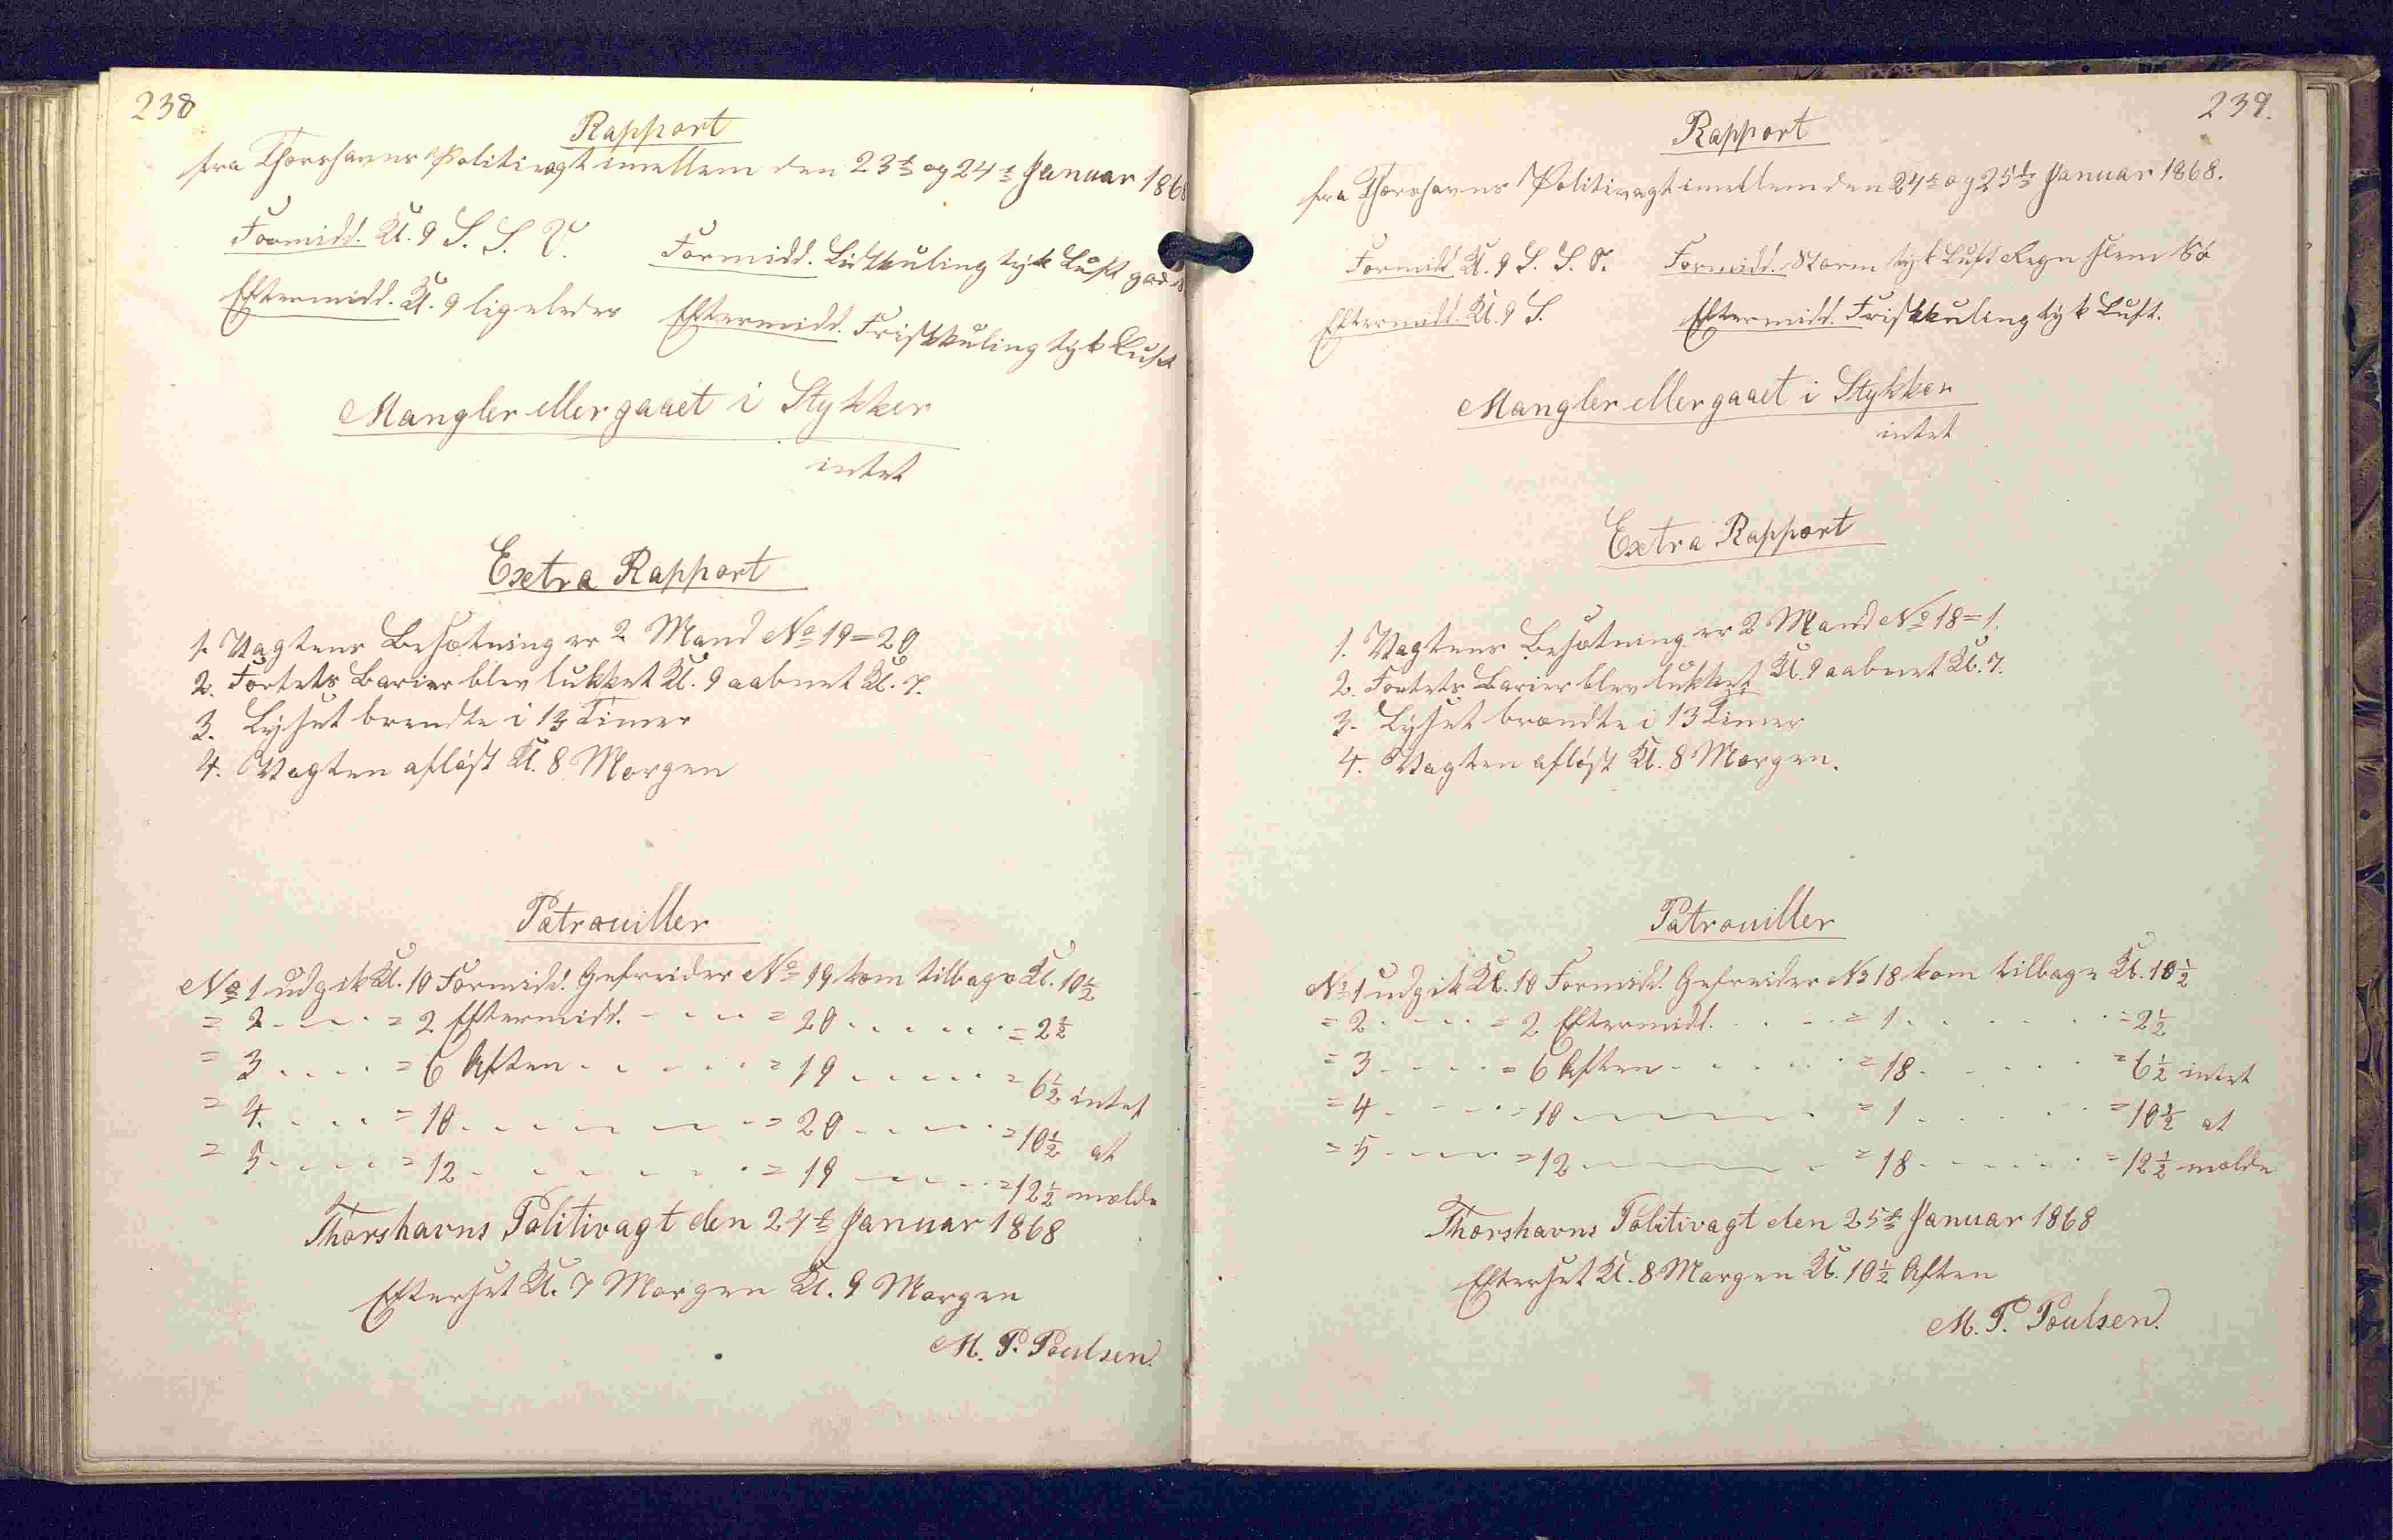 238
Rapport
fra Thorshavns Politivagt imellem den 23de og 24de Januar 1868
Formidd. Kl. 9 S. S. V.
Formidd. Lidtkuling tyk Luft god
Eftermidd. Kl. 9 ligeledes
Eftermidd. Friskkuling tyk Luft
Mangler eller gaaet i Stykker
intet
Extra Rapport
1. Vagtens Besætning er 2 Mand No 19=20
2. Fortets Barier blev lukket Kl. 9 aabnet Kl. 7.
3. Lyset brendte i 13 Timer
4. Vagten afløst Kl. 8 Morgen
Patrouiller
No 1 udgik Kl. 10 Formidd. Gefreider No 19 kom tilbage Kl. 10½
= 2 - - - = 2 Eftermidd. - - - = 20 - - - = 2½
= 3 - - - = 6 Aften - - - = 19 - - - = 6½ intet
= 4. - - - = 10 - - - = 20 - - - = 10½ at
= 5 - - - = 12 - - - = 19 - - - = 12½ melde
Thorshavns Politivagt den 24de Januar 1868
Efterset Kl. 7 Morgen Kl. 9 Morgen
M. P. Poulsen.
239.
Rapport
fra Thorshavns Politivagt imellem den 24de og 25de Januar 1868.
Formidd. Kl. 9 S. S. O.
Formidd. Storm tyk Luft Regn slem Sø
Eftermidd. Kl. 9 S.
Eftermidd. Friskkuling tyk Luft.
Mangler eller gaaet i Stykker
intet
Extra Rapport
1. Vagtens Besætning er 2 Mand No 18=1.
2. Fortets Barier blev lukket Kl. 9 aabnet Kl. 7.
3. Lyset brændte i 13 Timer
4. Vagten afløst Kl. 8 Morgen.
Patrouiller
No 1 udgik Kl. 10 Formidd. Gefreider No 18 kom tilbage Kl. 10½
= 2 - - - = 2 Eftermidd. - - - = 1 - - - = 2½
= 3 - - - = 6 Aften - - - = 18 - - - = 6½ intet
= 4 - - - = 10 - - - = 1 - - - = 10½ at
= 5 - - - = 12 - - - = 18 - - - = 12½ melde
Thorshavns Politivagt den 25de Januar 1868
Efterset Kl. 8 Morgen Kl. 10½ Aften
M. P. Poulsen.